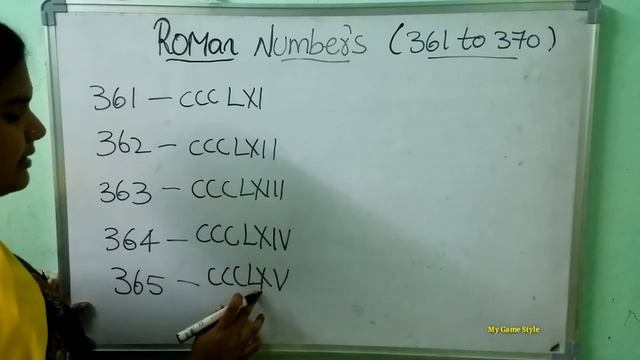 Roman Number's (361 to 370)
361 - CCCLXI
362 - CCCLXII
363 - CCCLXIII
364 - CCCLXIV
365 - CCCLXV
My Game Style